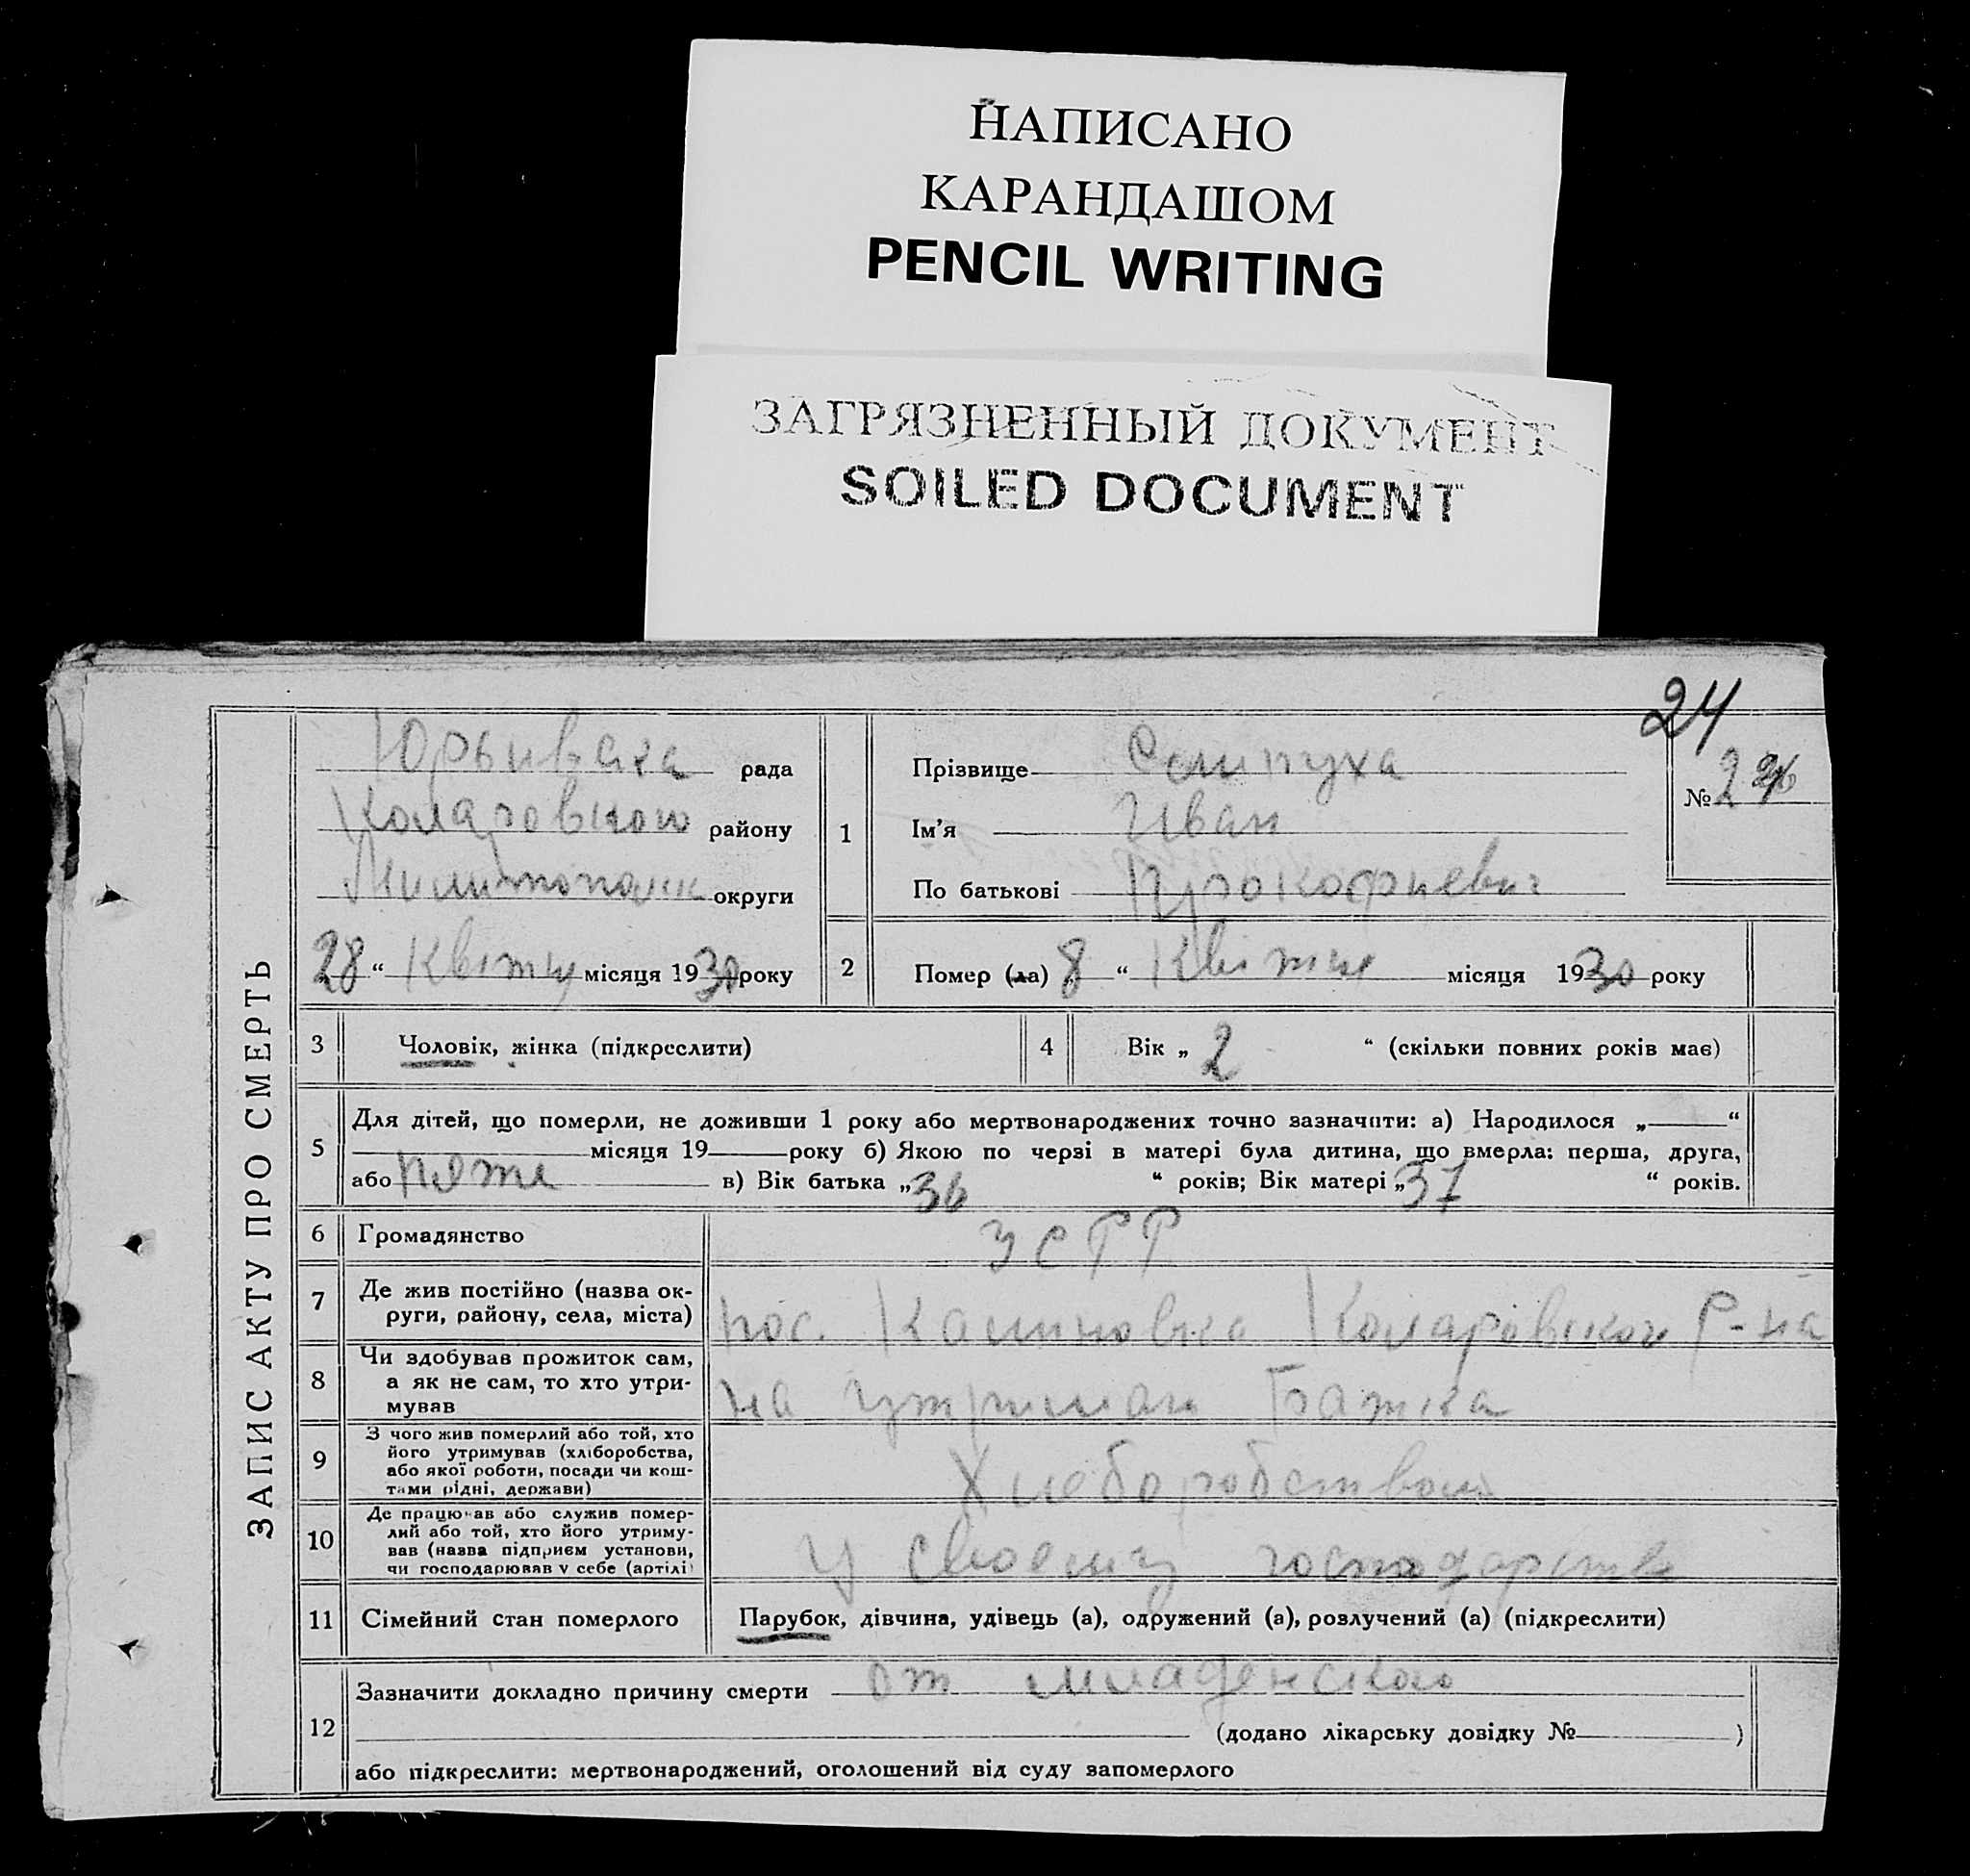 НАПИСАНО
КАРАНДАШОМ
PENCIL WRITING
ЗАГРЯЗНЕННЫЙ ДОКУМЕНТ
SOILED DOCUMENT
24
ЗАПИС АКТУ ПРО СМЕРТЬ
рада
Коларовского району
округи
28 “ Квітня місяця 1930 року
1
Прізвище
Ім’я Иван
По батькові Прокофиевич
№ 2
2
Помер (ла) 8 “ Квітня місяця 1930 року
3 Чоловік, жінка (підкреслити)
4 Вік „ 2 “ (скільки повних років має)
5 Для дітей, що померли, не доживши 1 року або мертвонароджених точно зазначити: а) Народилося „ “
місяця 19 року б) Якою по черзі в матері була дитина, що вмерла: перша, друга,
або в) Вік батька „ 36 “ років; Вік матері „ 37 “ років.
6 Громадянство УСРР
7 Де жив постійно (назва ок-
руги, району, села, міста)
пос. Калиновка Коларовского Р-на
8 Чи здобував прожиток сам,
а як не сам, то хто утри-
мував
на утриман Батька
9 З чого жив померлий або той, хто
його утримував (хліборобства,
або якої роботи, посади чи кош-
тами рідні, держави)
Хлеборобством
10 Де працював або служив помер-
лий або той, хто його утриму-
вав (назва підприєм установи,
чи господарював у себе (артілі)
у своему господарстве
11 Сімейний стан померлого Парубок, дівчина, удівець (а), одружений (а), розлучений (а) (підкреслити)
12 Зазначити докладно причину смерти от младенского
(додано лікарську довідку № )
або підкреслити: мертвонароджений, оголошений від суду запомерлого